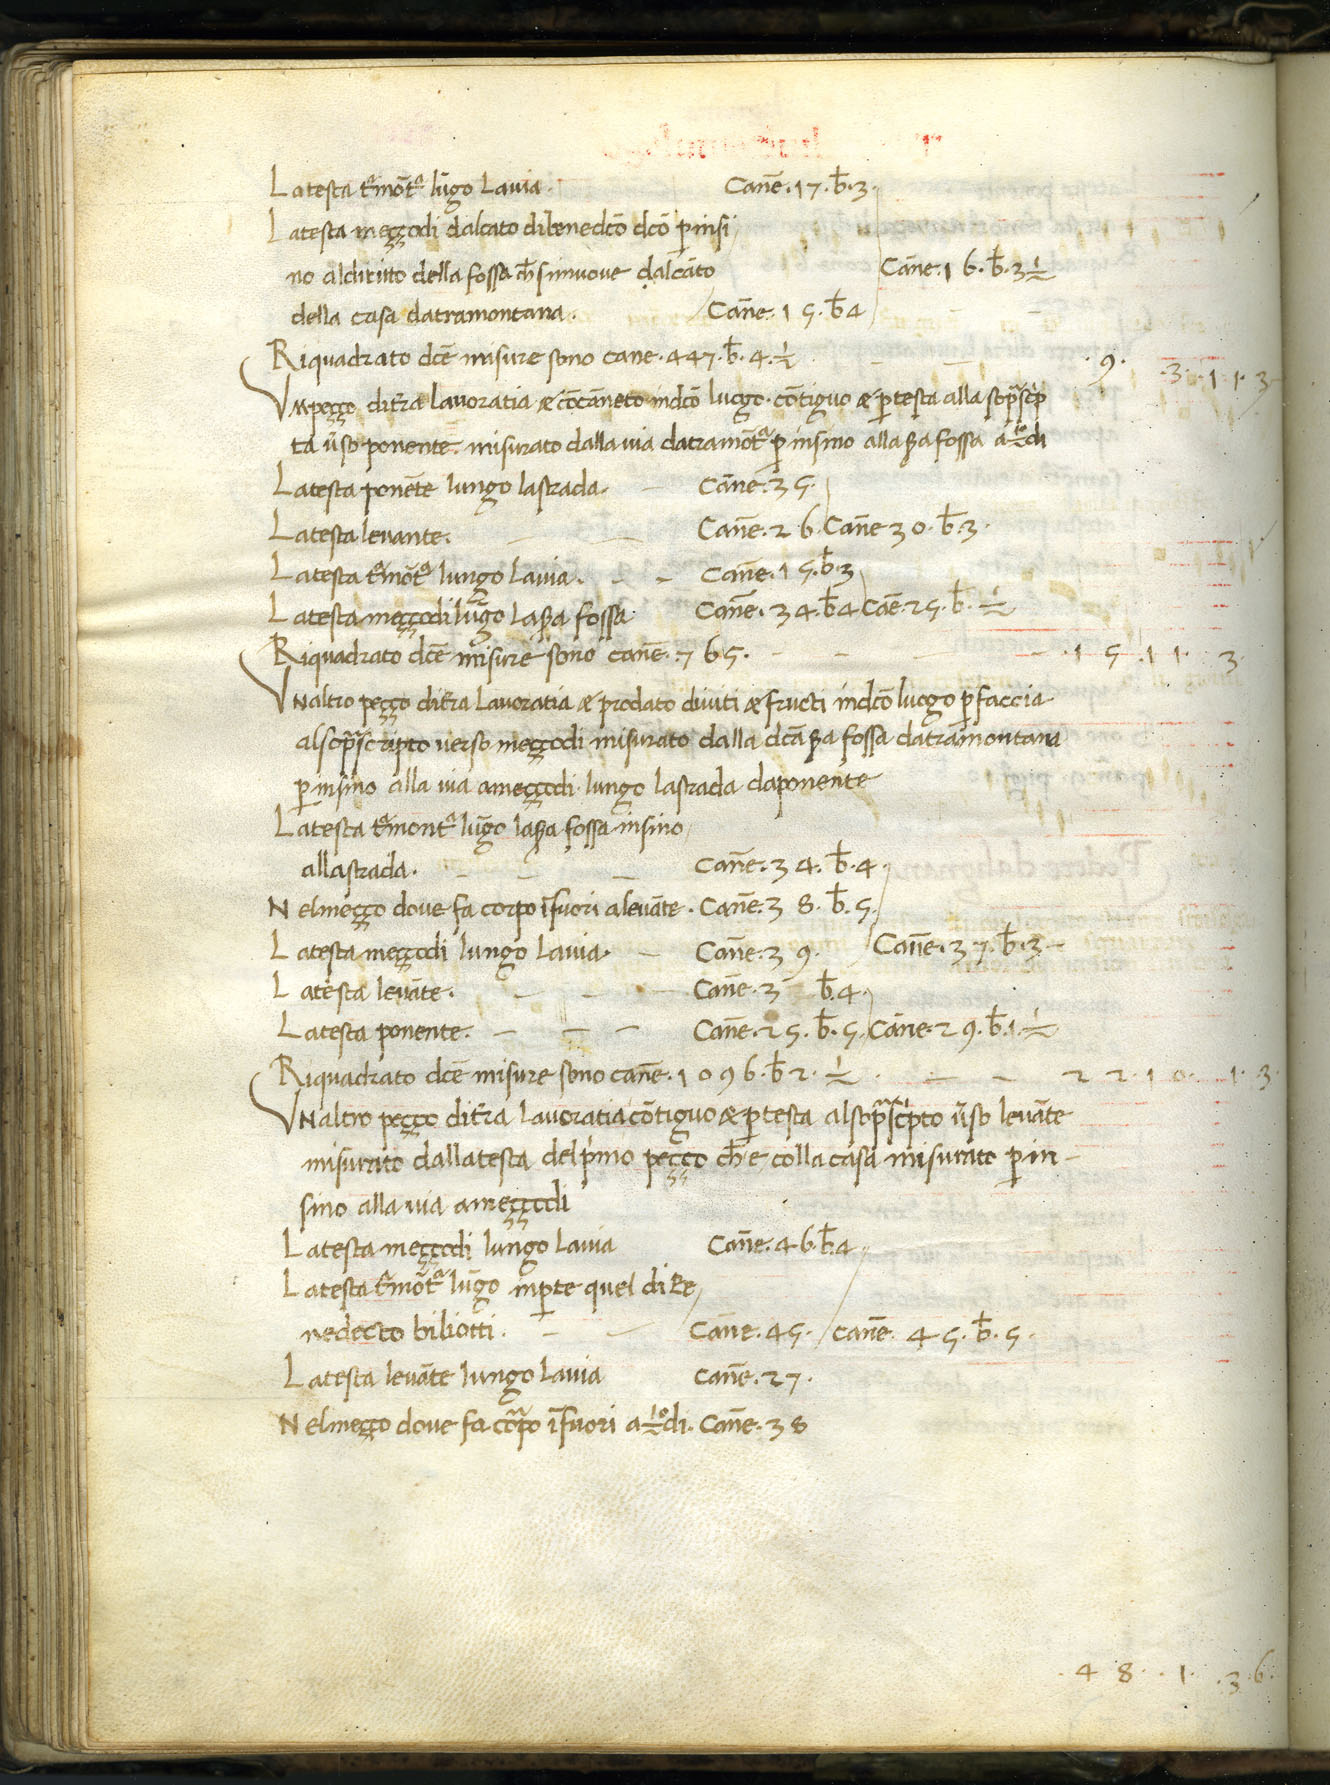 La testa t͞ramōt͞a lūgo Lauia. Cañe. 17. b̄. 3.
La testa meççodi dalcato dibenedc̄o dc̄o ꝑinsi
no aldiritto della fossa ch̄ simuove dalcāto Cāne. 16. b̄. 3 ½
della casa datramontana. Cañe. 15. b̄ 4
Riquadrato dc̄e misure sono cane. 447. b̄. 4. ½ . 9. .3. .11. 3
VM peçço dit̄ra Lavoratia & cōcāneto indc̄o luogo. cōtiguo & ꝑtesta alla sop̄ªsc̄p
ta ūso ponente. misurato dalla uia datramōtª ꝑ insino alla ꝑ̄a fossa a ½º di
La testa ponēte lungo lastrada. — Cāne. 35.
La testa levante. — — Cañe. 26. Cañe 30. b̄. 3.
La testa t͞ramōt͞a lungo Lauia. - - Cañe. 15. b̄. 3
La testa meççodi lūgo la ꝑ̄a fossa Cañe. 34. b̄ 4 Cāe. 25. b̄. ½
Riquadrato dc̄e misure sono cañe. 765. - - — . 15. 11. 3.
VN altro peçço dit̄ra Lavoratia & prodato diviti & fructi indc̄o luogo ꝑ faccia
alsop̄ªscripto verso meççodi misurato dalla dc̄a ꝑ̄a fossa datramontana
ꝑ insino alla uia ameççodi lungo lastrada daponente
La testa t͞ramont͞a lūgo la ꝑ̄a fossa insino
allastrada. - - — Cañe. 34. b̄. 4.
Nelmeçço dove fa corpo īfuori alevāte. Cañe. 38. b̄. 5.
La testa meççodi lungo Lauia. — Cañe. 39. Cañe. 37. b̄. 3
La testa levāte. — - — Cañe. 3 b̄. 4.
La testa ponente. — — — Cañe. 25. b̄. 5. Cāne. 29. b̄. 1. ½
Riquadrato dc̄e misure sono cañe. 1096. b̄ 2. ½. — — 22. 10. 1. 3.
VN altro peçço dit̄ra Lavoratia cōtiguo & ꝑ testa alsop̄ªsc̄pto ūso levāte
misurato dallatesta delp̄mo peçço ch̄ e colla casa misurato ꝑ in-
sino alla uia ameççodi
La testa meççodi lungo Lauia Cañe. 46. b̄. 4
La testa t͞ramōt͞a lūgo inꝑte quel di Be
nedecto biliotti. - — Cane. 45. cañe. 45. b̄. 5.
La testa levāte lungo Lauia Cañe. 27.
Nelmeçço dove fa cōrpo īfuori a ½º di. Cañe. 38
. 48. . 1. . 36.